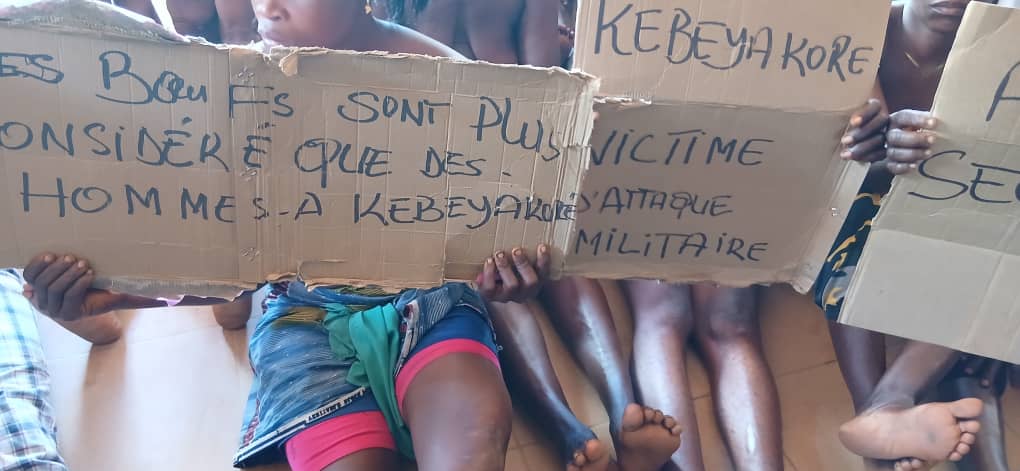 ES BOEUFS SONT PLUS
ONSIDÉRÉ QUE DES.
HOMMES-A KEBEYAKORE
KEBEYAKORE
VICTIME
D'ATTAQUE
MILITAIRE
A
SE